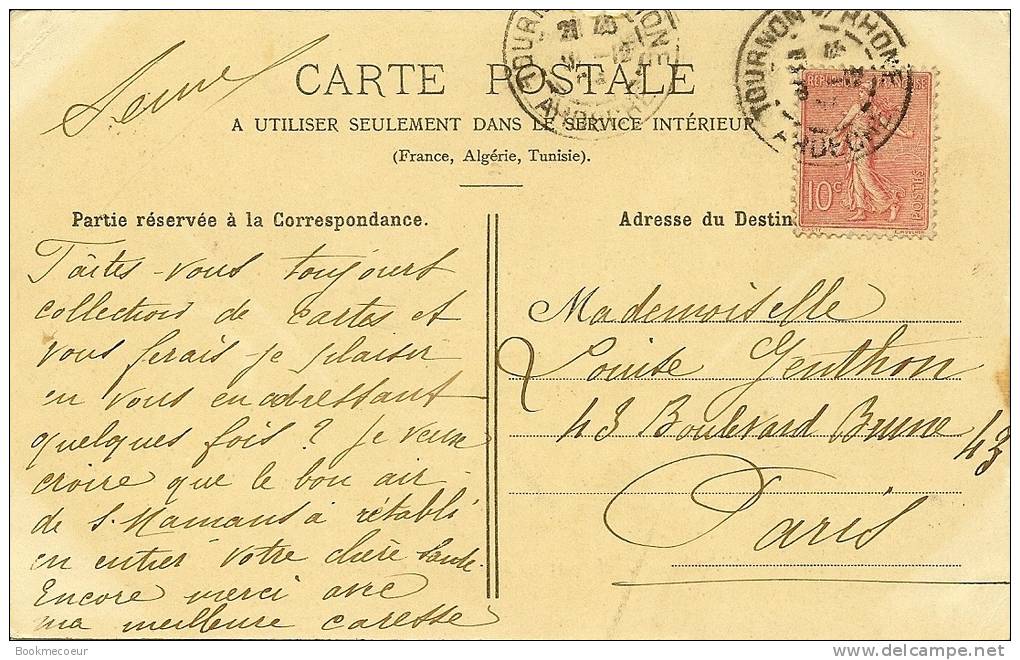 CARTE POSTALE
A UTILISER SEULEMENT DANS LE SERVICE INTÉRIEUR
(France, Algérie, Tunisie).
TOURNON S/ RHONE
ARDECHE
TOURNON S/ RHONE
ARDECHE
10c
POSTES
Partie réservée à la Correspondance.
Faites-vous toujours
collection de cartes et
vous ferais-je plaisir
en vous en adressant
quelques fois ? Je veux
croire que le bon air
de S. Mamans à rétabli
en entier votre chère santé.
Encore merci avec
ma meilleure caresse
Adresse du Destin
Mademoiselle
Louise Genthon
43 Boulevard Brune 43
Paris
Bookmecoeur
delcampe.net